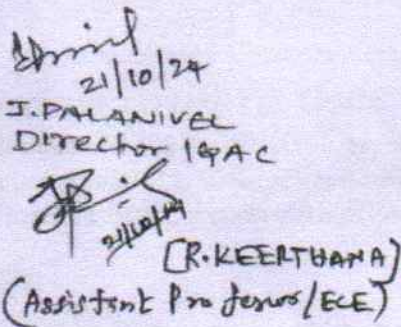 21/10/24
J.PALANIVEL
Director IQAC
21/10/24
[R.KEERTHANA]
(Assistant Professor/ECE)